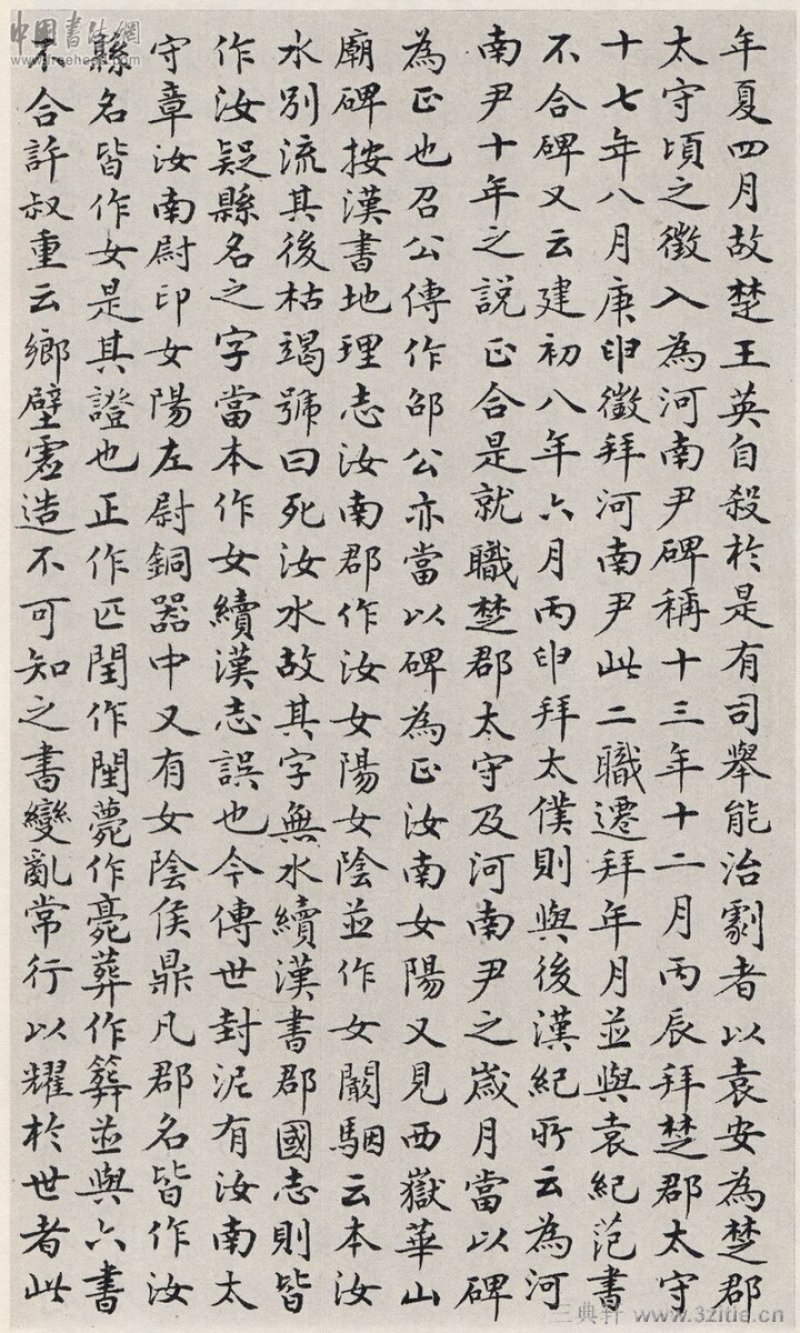 年夏四月故楚王英自殺於是有司舉能治劇者以袁安為楚郡
太守頃之徵入為河南尹碑稱十三年十二月丙辰拜楚郡太守
十七年八月庚申徵拜河南尹此二職遷拜年月並與袁紀范書
不合碑又云建初八年六月丙申拜太僕則與後漢紀所云為河
南尹十年之說正合是就職楚郡太守及河南尹之歲月當以碑
為正也召公傳作邵公亦當以碑為正汝南女陽又見西嶽華山
廟碑按漢書地理志汝南郡作汝女陽女陰並作女闞駰云本汝
水別流其後枯竭號曰死汝水故其字無水續漢書郡國志則皆
作汝疑縣名之字當本作女續漢志誤也今傳世封泥有汝南太
守章汝南尉印女陽左尉銅器中又有女陰侯鼎凡郡名皆作汝
縣名皆作女是其證也正作匹閏作閠薨作薧葬作箳並與六書
不合許叔重云鄉壁虛造不可知之書變亂常行以耀於世者此
中国書法網
www.freehead.com
三典轩 www.32itie.cn